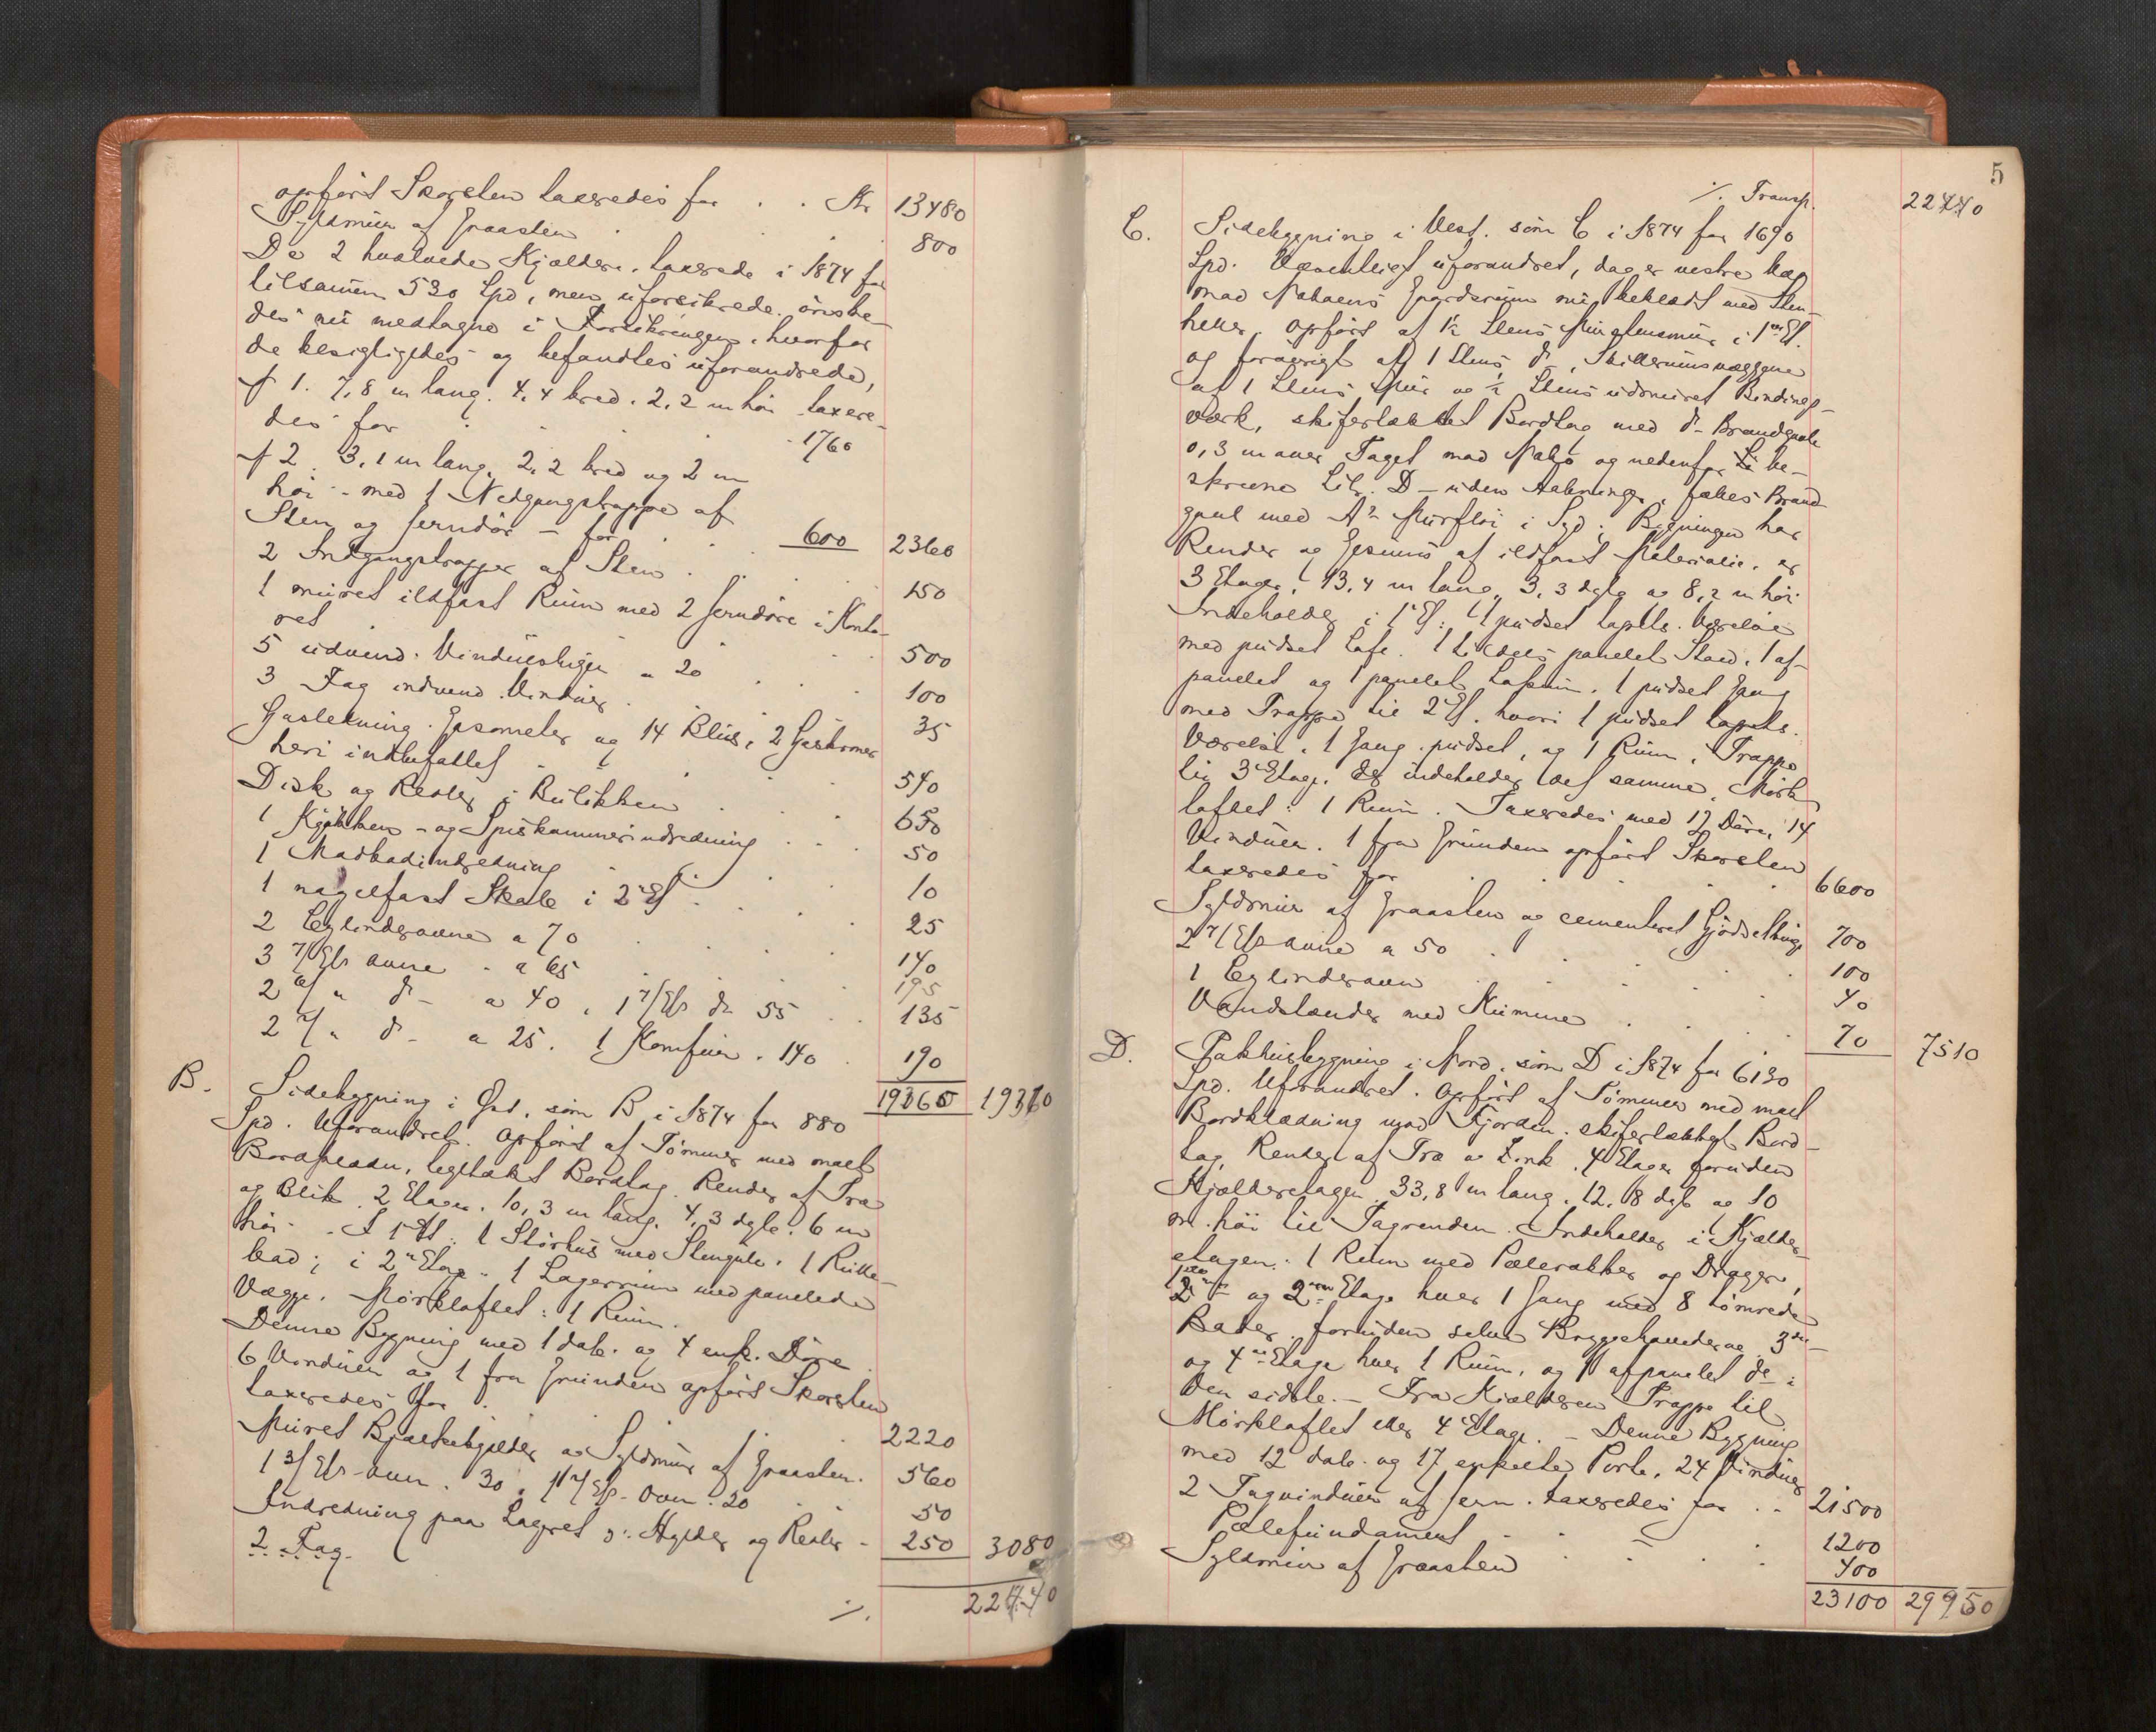 opført Skorsten taxeredes for . . Kr 13480
Syldmur af Graasten . . . 800
De 2 hvælvede Kjældere, taxerede i 1874 for
tilsammen 530 Spd, men uforsikrede, ønske-
des nu medtagne i Forsikringen, hvorfor
de besigtigedes og befandtes uforandrede,
№ 1. 7,8 m lang. 4,4 bred. 2,2 m høi taxere-
des for . . . . 1760
№ 2. 3,1 m lang, 2,2 bred og 2 m
høi - med 1 Nedgangstrappe af
Sten og Jerndør - for . . 600 2360
2 Indgangstrapper af Sten . . . 150
1 muret ildfast Rum med 2 Jerndøre i Konto-
ret . . . 500
5 udvend. Vindueshyer a 20 . . . 100
3 Fag indvend. Vinduer . . 35
Gasledning. Gasometer og 14 Blus, 2 Gaskroner
heri indbefattet . . . 540
Disk og Reoler i Butikken . . . 650
1 Kjøkken- og Spiskammerindredning . . . 50
1 Madbodindredning . . . 10
1 nagelfast Skab i 2 Et . . . 25
2 Cylinderovne a 70 . . . 140
3 7/Etgs ovne - a 65 . . . 195
2 " do - a 40, 1 7/Etgs do 55 . . 135
2 " do - a 25. 1 Komfur. 140 . 190
19360 19360
B. Sidebygning i Øst, som B i 1874 for 880
Spd. Uforandret. Opført af Tømmer med malt
Bordklædn, tegltækt Bordtag. Render af Træ
og Blik. 2 Etager. 10,3 m lang. 4,3 dyb. 6 m
høi. I 1 Et: 1 Størhus med Stengulv. 1 Rulle-
bod; i 2 Etage: 1 Lagerrum med panelede
Vægge. Mørkloftet: 1 Rum.
Denne Bygning med 1 dob. og 4 enk. Døre
6 Vinduer og 1 fra Grunden opført Skorsten
taxeredes for . . . 2220
Muret Bjælkekjelder og Syldmur af Graasten. 560
1 3/Etgs-ovn. 30, 1 2/Etgs-Ovn. 20 . . 50
Indredning paa Lageret o: Hylder og Reoler - 250 3080
2 Fag.
./. 22440
5
./. Transp. 22440
C. Sidebygning i Vest. som C i 1874 for 1690
Spd. Væsentligt uforandret, dog er vestre Væg
mod Naboens Gaardsrum nu beklædt med Sten-
heller. Opført af 1½ Stens Murstensmur i 1ste Et.
og forøvrigt af 1 Stens do, Skillerumsvæggene
af 1 Stens Mur og ½ Stens udmuret Bindings-
værk, skifertækket Bordtag med do Brandgavle
0,3 m over Taget mod Nabo og nedenfor be-
skrevne Litr. D - uden Aabninger, fælles Brand-
gavl med A's Murfløi i Syd; Bygningen har
Render og Gesims af ildfast Materiale. er
3 Etager, 13,4 m lang, 3,3 dyb og 8,2 m høi.
Indeholder i 1 Et: 1 pudset tapets. Værelse
med pudset Loft. 1 tildels panelet Stald, 1 af-
panelet og 1 panelet Lofrum. 1 pudset Gang
med Trappe til 2 Et. hvori 1 pudset tapets.
Værelse, 1 Gang, pudset, og 1 Rum, Trappe
til 3 Etage, der indeholder det samme. Mørk-
loftet: 1 Rum. Taxeredes med 12 Døre, 14
Vinduer. 1 fra Grunden opført Skorsten
taxeredes for . . . . 6600
Syldmur af Graasten og cementeret Gjødselbinge 700
2 7/Etgs ovne a 50 . . . 100
1 Cylinderovn . . . 40
Vandstænder med Kumme . . . 70 7510
D. Pakhusbygning i Nord, som D i 1874 for 6130
Spd. Uforandret. Opført af Tømmer med malt
Bordklædning mod Fjorden. skifertækket Bord-
tag, Render af Træ og Zink, 4 Etager foruden
Kjælderetagen 33,8 m lang. 12,8 dyb og 10
m. høi til Tagrenden. Indeholder i Kjælder-
etagen: 1 Rum med Pælerækker og Dragere,
1ste og 2den Etage hver 1 Gang med 8 tømrede
Boder, foruden selve Bryggehanderne 3die
og 4de Etage hver 1 Rum, og 1 afpanelet do i
den sidste. - Fra Kjælderen Trappe til
Mørkloftet eller 4 Etage. - Denne Bygning
med 12 dob. og 17 enkelte Porte, 24 Vinduer
2 Tagvinduer af Jern. taxeredes for . . 21500
Pælefundament . . . 1200
Syldmur af Graasten . . . 400
23100 29950